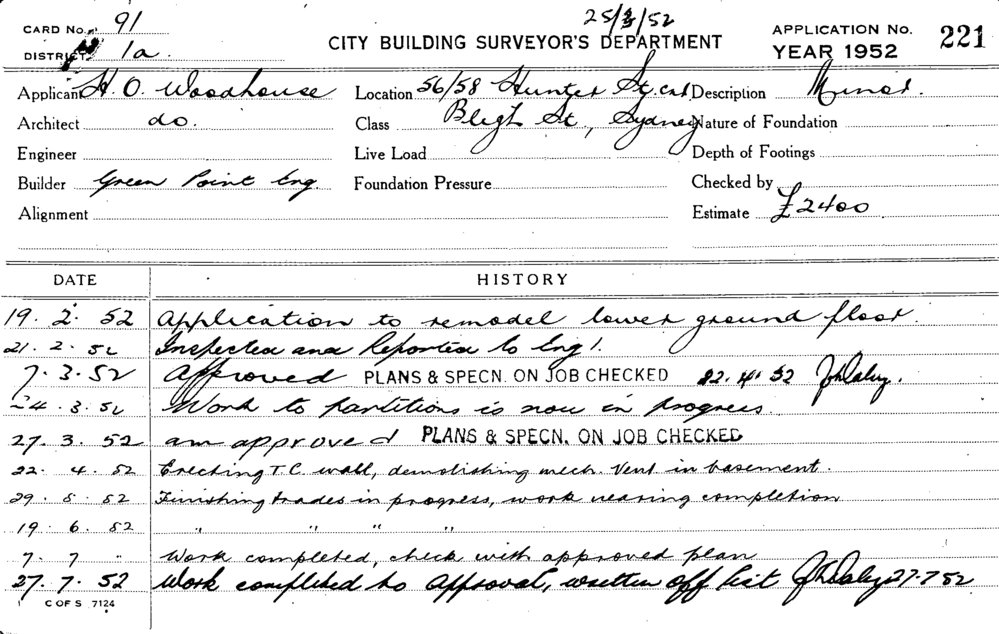 25/3/52
CARD No. 91
DISTRICT 1a.
CITY BUILDING SURVEYOR'S DEPARTMENT
APPLICATION No. 221
YEAR 1952
Applicant H. O. Woodhouse Location 56/58 Hunter St, cnr Description Minor.
Architect do. Class Bligh St, Sydney Nature of Foundation
Engineer Live Load Depth of Footings
Builder Green Point Eng Foundation Pressure Checked by
Alignment Estimate £2400
DATE HISTORY
19. 2. 52 Application to remodel lower ground floor.
21. 2. 52 Inspected and Reported to Eng/.
7. 3. 52 Approved PLANS & SPECN. ON JOB CHECKED 22. 4. 52
24. 3. 52 Work to partitions is now in progress
27. 3. 52 am approved PLANS & SPECN. ON JOB CHECKED
22. 4. 52 Erecting T.C. wall, demolishing mech. Vent in basement.
29. 5. 52 Finishing trades in progress, work nearing completion
19. 6. 52 " " " "
7. 7 " Work completed, check with approved plan
27. 7. 52 Work completed to approval, written off list 27.7.52
C OF S 7124